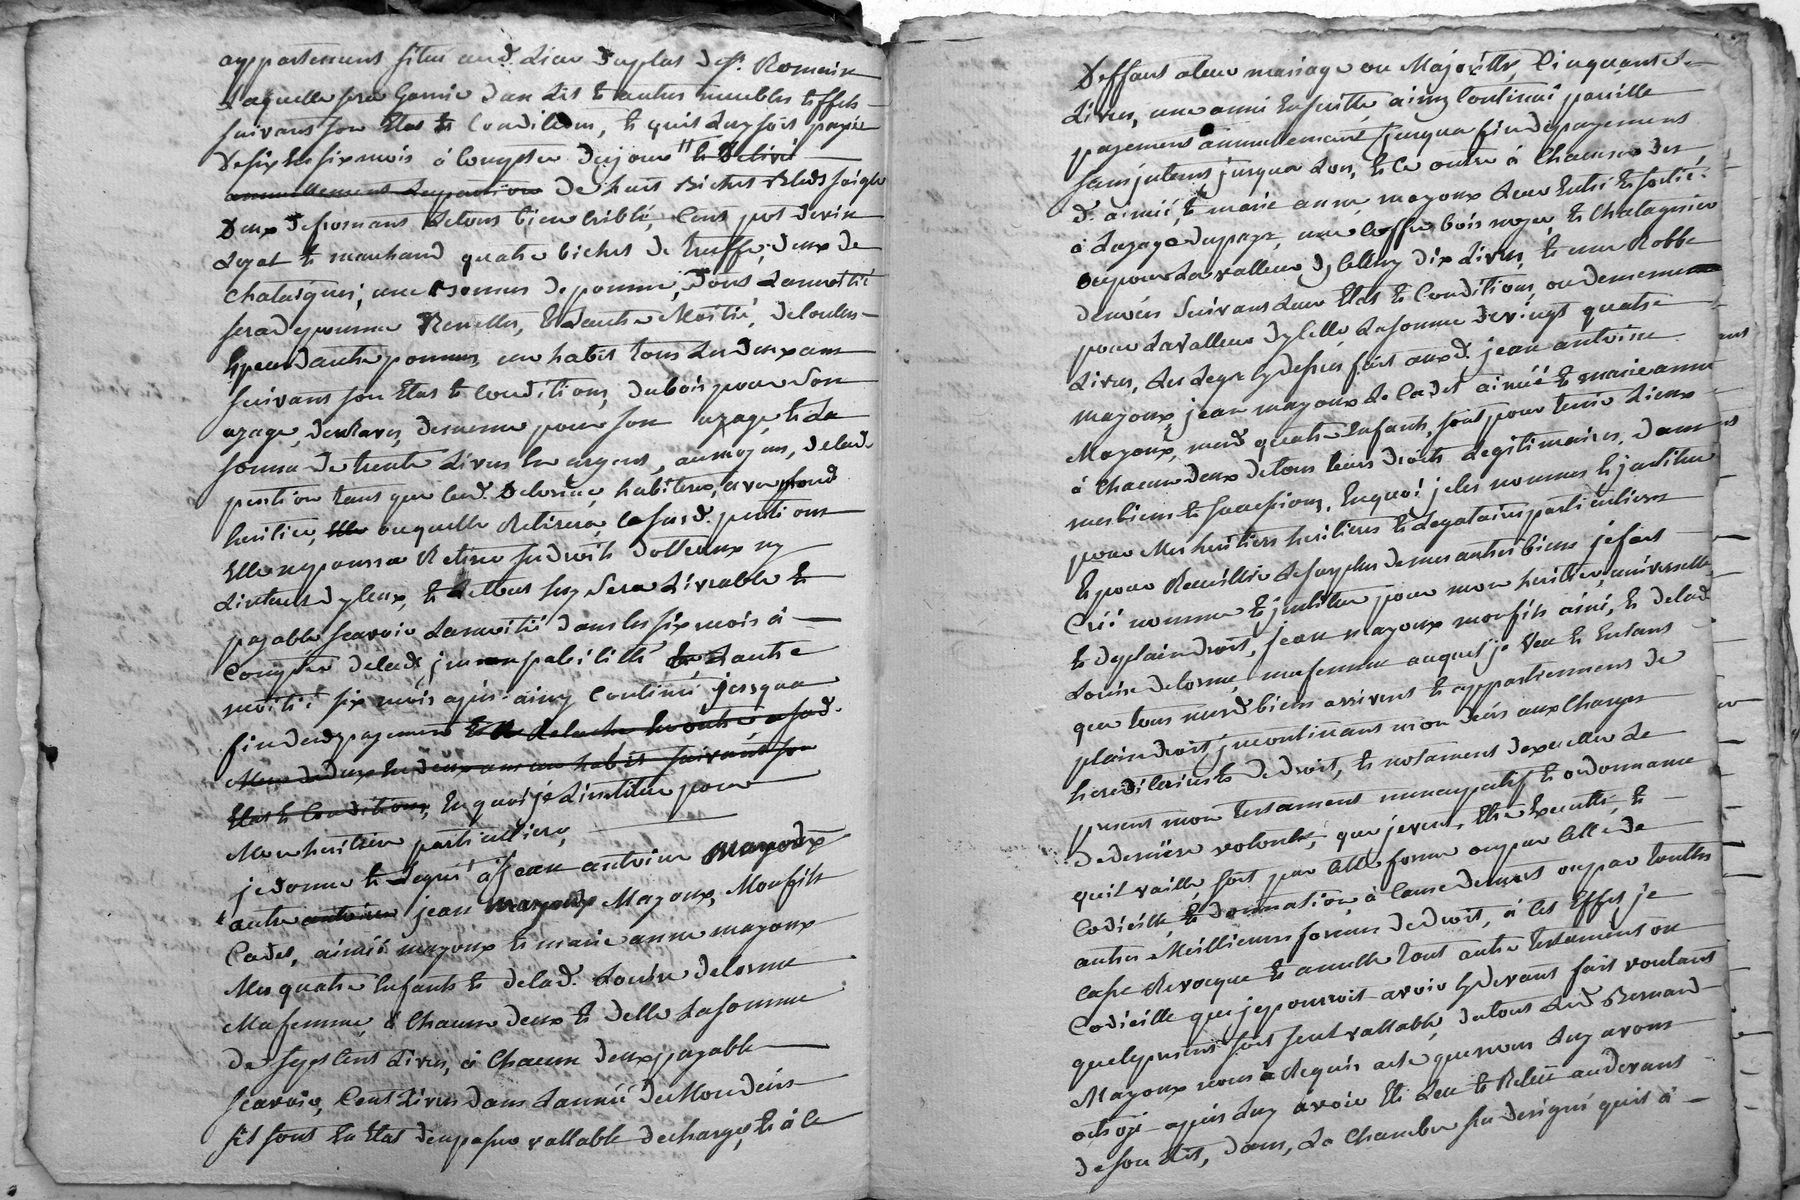 appartement situé aud. lieu duplas de st. Romain
Laquelle sera Garnie d'un lit et autres meubles et effets
suivant son Etat et Condition, et quil luy soit payé
de six en six mois à Compter du jour " le délivré
annuellement la pention de huit Bichet Bleds seigle
Deux de froment le tout bien criblé, Cent pot de vin
Loyal et marchand quatre bichet de truffe, deux de
Chataignes, une de pomme, dont la moitié
sera de pomme Renettes, et L'autre Moitié, de toutes
Espece d'autre pommes, un habit tous les deux ans
suivant son Etat et Conditions, du bois pour son
uzage, de mesme pour son uzage, et La
somme de trente Livres En argent, au moyens, de lad.
pention tant que lad. Delorme, habitera, avec mond.
heritier, Elle ou quelle Retirera la susd. pention
Elle ny poura Retirer ses droits dotteaux ny
Linterest dyceux, et Le tout luy sera Livrable et
payable scavoir La moitié dans les six mois à
Compter de lad. jncompatibilité et L'autre
moitié six mois apres ainsy Continué jusqua
fin de payement
Etat et Conditions, En quoi je Linstitue pour
Mon heritiere particulliere,
je donne et Legue à jean antoine Mayoux
autre antoine jean Mayoux, Mon fils
Cadet, aimée mayoux et marie anne mayoux
Mes quatre Enfants et de lad. Louise delorme
Ma femme, à Chacun deux et d'elle La somme
de sept Cent Livres, à Chacun deux payable
scavoir, Cent Livres dans Lannée de Mon deces
sil sont En Etat d'en passer vallable decharge, et à ce
Deffaut a leur mariage ou Majoritté, Cinquante
Livres, une anné Ensuitte, ainsy Continué pareille
payement annuelement jusqua fin de payement
sans jnterest jusqua lors, et ce outre à Chacune des
d. aimée et marie anne mayoux Leur Entré et sortié
à Luzage du pays, une Coffre bois noyer, et Chatagnier
ou pour La valleur dycelluy dix Livres, et une Robbe
suivant Leur Etat et Conditions, ou
pour La valleur dycelle La somme de vingt quatre
Livres, Les Legs cy dessus fait auxd. jean antoine
mayoux, jean mayoux le Cadet aimée et marie anne
Mayoux, mesd. quatre Enfants, sont pour tenir Lieux
à Chacun deux de tous leurs droits Legitimaires, dans
mes biens et successions, En quoi je les nommes et jnstitue
pour Mes heritiers heritieres et Legataires particulliers
Et pour Receuillir Le surplus de mes autres biens je fait
Créé nomme et jnstitue pour mon heritier, universelle
et de plain droit, jean mayoux mon fils ainé, et de lad.
Louise delorme, ma femme auquel je veu et Entans
que tous mesd. biens arrivent et appartiennent de
plain droit, jncontinant mon deces aux Charges
hereditaires et de droit, et notament dexecuter Le
present mon testament nuncupatif et ordonnance
de derniere volonté, que je veux, Etre Executté, et
quil vaille, soit par telle forme ou par Celle de
Codicille, et donnation à Cause de mort ou par touttes
autres Meillieures formes de droit, à Cet Effet je
Casse Revoque et annulle tout autre testament ou
Codicille que je pourroit avoir cy devant fait voulant
que le present soit seul vallable, du tout Led. Bernard
Mayoux nous à Requis acte que nous Luy avons
octroyé apres Luy avoir Eté Leu et Releu au devant
de son Lit, dans, La Chambre sus designé quil à